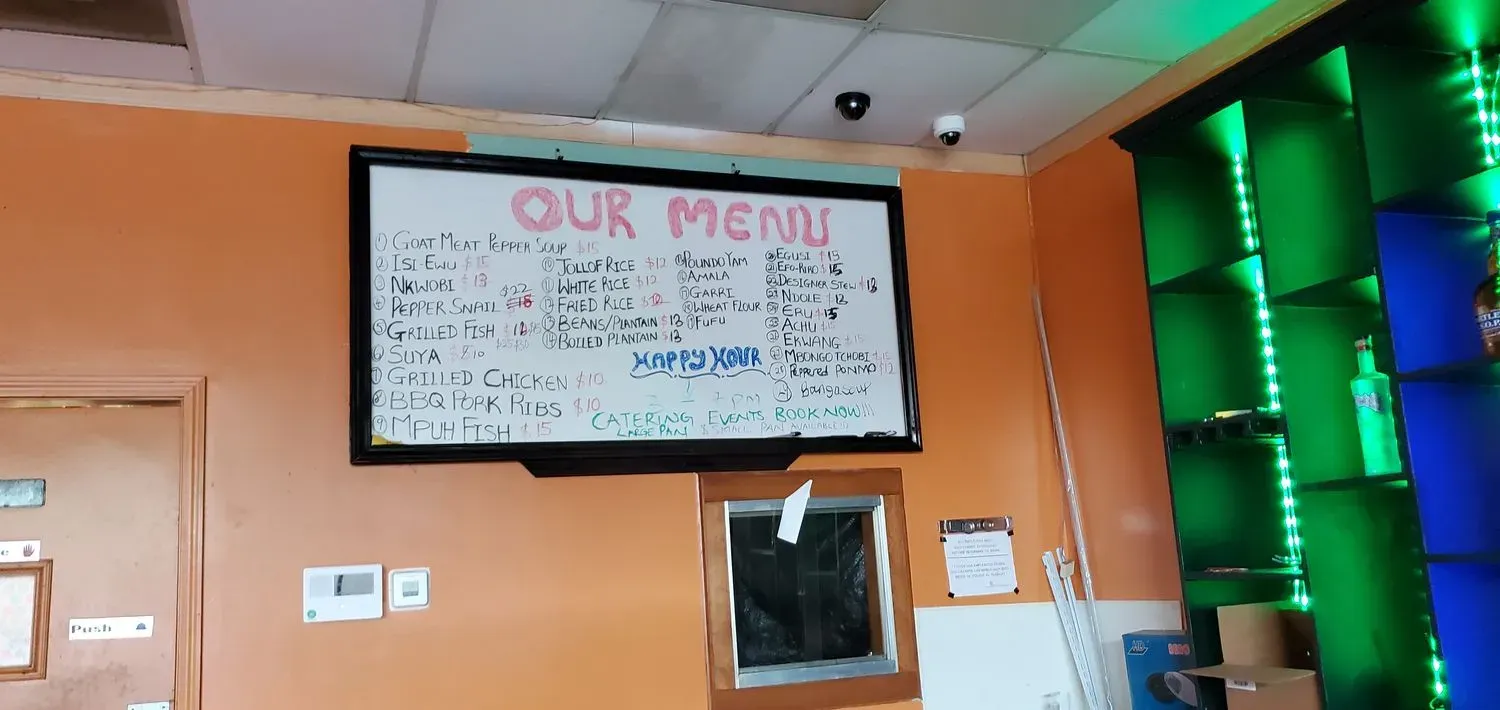 OUR MENU
① GOAT MEAT PEPPER SOUP $15
② ISI-EWU $15
③ NKWOBI $13
④ PEPPER SNAIL $22
⑤ GRILLED FISH
⑥ SUYA
⑦ GRILLED CHICKEN $10
⑧ BBQ PORK RIBS $10
⑨ MPUH FISH $15
⑩ JOLLOF RICE $12
⑪ WHITE RICE $12
⑫ FRIED RICE $12
⑬ BEANS/PLANTAIN $13
⑭ BOILED PLANTAIN $13
⑮ POUNDO YAM
⑯ AMALA
⑰ GARRI
⑱ WHEAT FLOUR
⑲ FUFU
⑳ EGUSI $13
㉑ EFO-RIRO $15
㉒ DESIGNER STEW $13
㉓ NDOLE $13
㉔ ERU $15
㉕ ACHU $15
㉖ EKWANG $15
㉗ MBONGO TCHOBI $15
㉘ Peppered PONMO $12
㉙ Banga soup
HAPPY HOUR
7 PM
CATERING EVENTS BOOK NOW!!!
LARGE PAN & SMALL PAN AVAILABLE!!!
Push